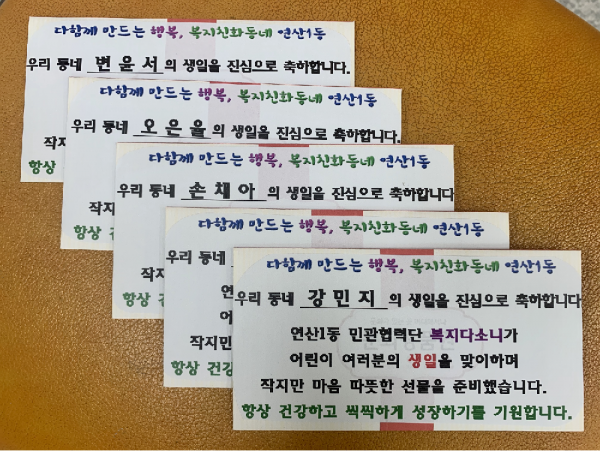 다함께 만드는 행복, 복지친화동네 연산1동
우리 동네 변윤서 의 생일을 진심으로 축하합니다.
작지
항상
다함께 만드는 행복, 복지친화동네 연산1동
우리 동네 오은율 의 생일을 진심으로 축하합니다.
작지
항상
다함께 만드는 행복, 복지친화동네 연산1동
우리 동네 손채아 의 생일을 진심으로 축하합니다
작지
항상 건강
다함께 만드는 행복, 복지친화동네 연산1동
우리 동네
연
어
작지만
항상 건강
다함께 만드는 행복, 복지친화동네 연산1동
우리 동네 강민지 의 생일을 진심으로 축하합니다
연산1동 민관협력단 복지다소니가
어린이 여러분의 생일을 맞이하며
작지만 마음 따뜻한 선물을 준비했습니다.
항상 건강하고 씩씩하게 성장하기를 기원합니다.